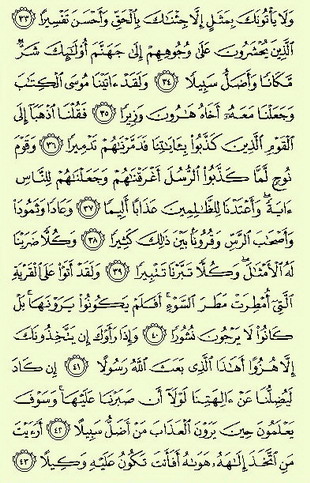 وَلَا يَأْتُونَكَ بِمَثَلٍ إِلَّا جِئْنَٰكَ بِٱلْحَقِّ وَأَحْسَنَ تَفْسِيرًا ٣٣
ٱلَّذِينَ يُحْشَرُونَ عَلَىٰ وُجُوهِهِمْ إِلَىٰ جَهَنَّمَ أُو۟لَٰٓئِكَ شَرٌّ
مَّكَانًا وَأَضَلُّ سَبِيلًا ٣٤ وَلَقَدْ ءَاتَيْنَا مُوسَى ٱلْكِتَٰبَ
وَجَعَلْنَا مَعَهُۥٓ أَخَاهُ هَٰرُونَ وَزِيرًا ٣٥ فَقُلْنَا ٱذْهَبَآ إِلَى
ٱلْقَوْمِ ٱلَّذِينَ كَذَّبُوا۟ بِـَٔايَٰتِنَا فَدَمَّرْنَٰهُمْ تَدْمِيرًا ٣٦ وَقَوْمَ
نُوحٍ لَّمَّا كَذَّبُوا۟ ٱلرُّسُلَ أَغْرَقْنَٰهُمْ وَجَعَلْنَٰهُمْ لِلنَّاسِ
ءَايَةً وَأَعْتَدْنَا لِلظَّٰلِمِينَ عَذَابًا أَلِيمًا ٣٧ وَعَادًا وَثَمُودَا۟
وَأَصْحَٰبَ ٱلرَّسِّ وَقُرُونًۢا بَيْنَ ذَٰلِكَ كَثِيرًا ٣٨ وَكُلًّا ضَرَبْنَا
لَهُ ٱلْأَمْثَٰلَ وَكُلًّا تَبَّرْنَا تَتْبِيرًا ٣٩ وَلَقَدْ أَتَوْا۟ عَلَى ٱلْقَرْيَةِ
ٱلَّتِىٓ أُمْطِرَتْ مَطَرَ ٱلسَّوْءِ أَفَلَمْ يَكُونُوا۟ يَرَوْنَهَا بَلْ
كَانُوا۟ لَا يَرْجُونَ نُشُورًا ٤٠ وَإِذَا رَأَوْكَ إِن يَتَّخِذُونَكَ
إِلَّا هُزُوًا أَهَٰذَا ٱلَّذِى بَعَثَ ٱللَّهُ رَسُولًا ٤١ إِن كَادَ
لَيُضِلُّنَا عَنْ ءَالِهَتِنَا لَوْلَآ أَن صَبَرْنَا عَلَيْهَا وَسَوْفَ
يَعْلَمُونَ حِينَ يَرَوْنَ ٱلْعَذَابَ مَنْ أَضَلُّ سَبِيلًا ٤٢ أَرَءَيْتَ
مَنِ ٱتَّخَذَ إِلَٰهَهُۥ هَوَىٰهُ أَفَأَنتَ تَكُونُ عَلَيْهِ وَكِيلًا ٤٣